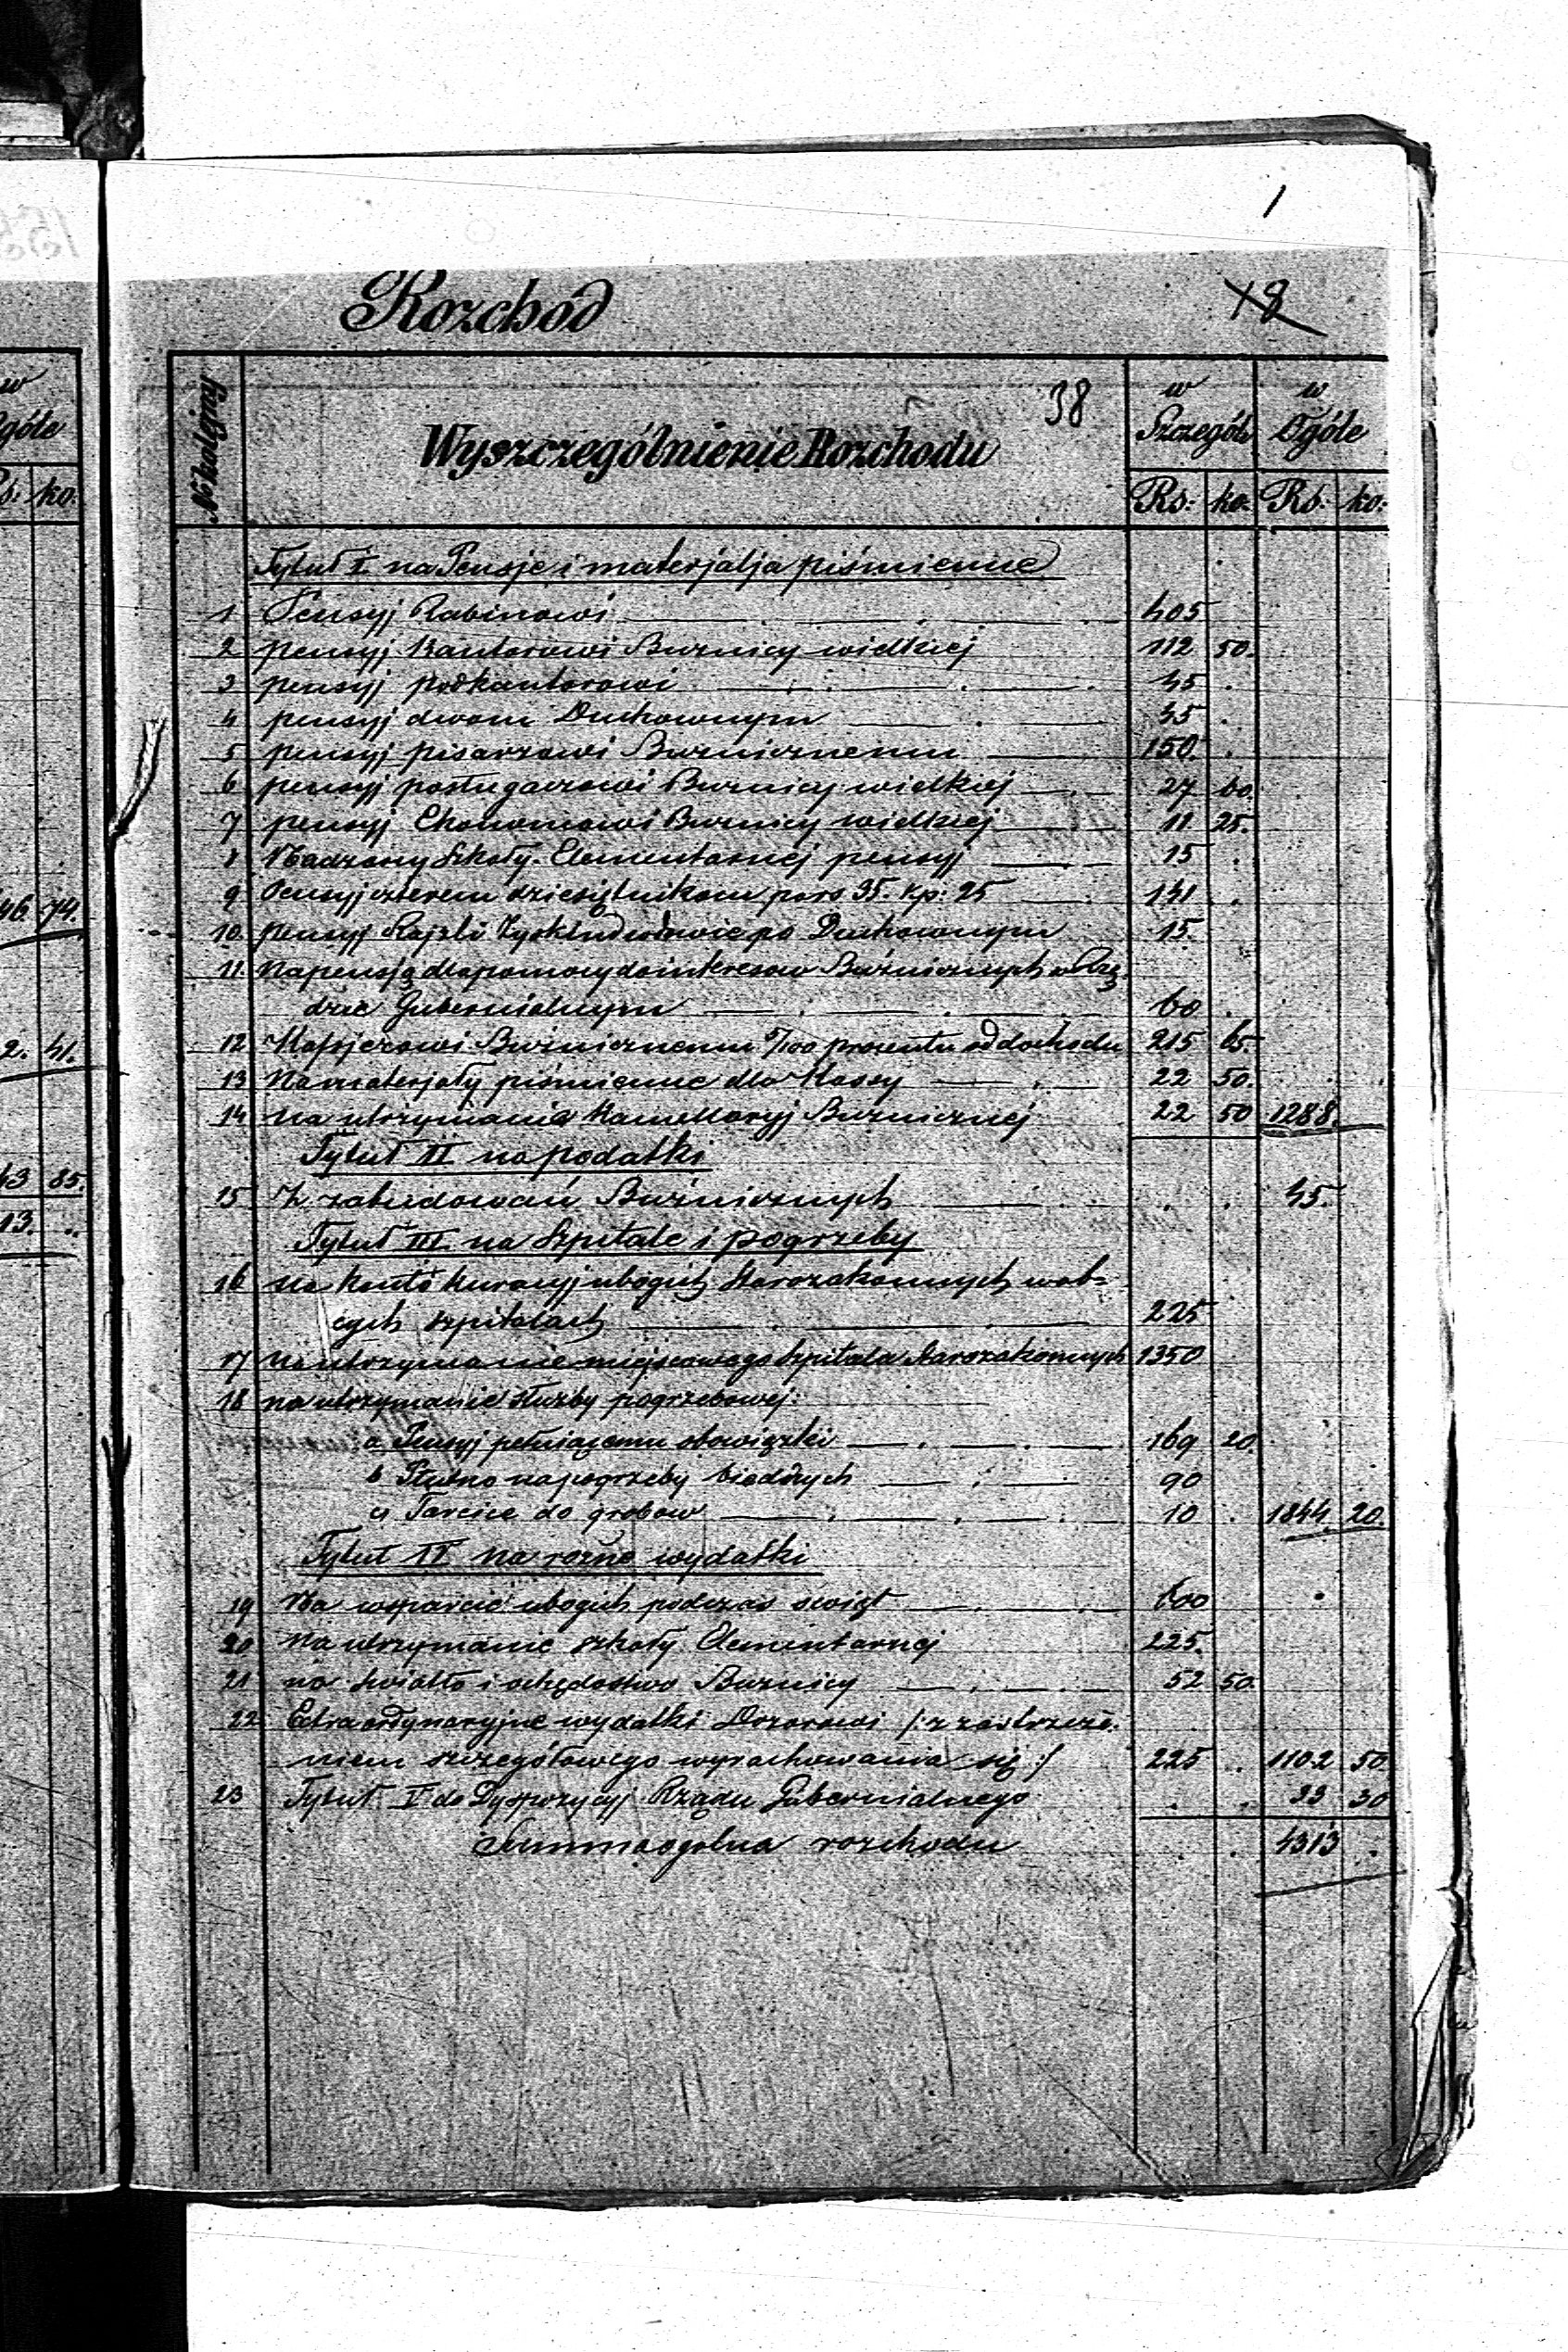 1
Rozchod
18
38
w
góle
Rs: ko:
46. 74.
2. 41.
43 85.
13. ..
№ kolejny
Wyszczególnienie Rozchodu
w Szczegól: w Ogóle
Rs: ko: Rs: ko:
Tytuł I. na Pensje i materjalja piśmienne
1 Pensyj Rabinowi 405
2 pensyj Kantorowi Buznicy wielkiej 112 50.
3 pensyj podkantorowi 45 .
4 pensyj dwom Duchownym 45 .
5 pensyj pisarzowi Buznicznemu 150. .
6 pensyj posługaczowi Buznicy wielkiej 27 60.
7 pensyj Buznicy wielkiej 11 25.
8 Szkoły Elementarnej pensyj 15 .
9 Pensyj czterem dziesiętnikom po rs. 35. kp: 25 141 .
10. pensyj Rajzli wdowie po Duchownym 15.
11. Na pensją dla pomocy do interesow Buźnicznych w Rzą=
dzie Gubernialnym 60 .
12 Kassjerowi Buźnicznemu 5/100 prozentu od dochodu 215 65.
13 Na materjały piśmienne dla Kassy 22 50.
14 na utrzymanie Kancellaryj Buznicznej 22 50 1288.
Tytuł II na podatki
15 Z zabudowań Buźnicznych . . 45.
Tytuł III. na Szpitale i pogrzeby
16 na koszta kuracyj ubogich Starozakonnych w ob=
cych szpitalach 225
17 na utrzymanie miejscowego Szpitala Starozakonnych 1350
18 na utrzymanie służby pogrzebowej:
a Pensyj pełniącemu obowiązki 169 20.
b Płutno na pogrzeby biednych 90
c Tarcice do grobow 10 . 1844. 20.
Tytuł IV na rożne wydatki
19 Na wsparcie ubogich podczas swiąt 600
20 Na utrzymanie szkoły Elementarnej 225.
21 na swiatło i ochędostwo Buznicy 52 50.
22 Extraordynaryjne wydatki Dozorowi /: z zastrzeże=
niem szczegółowego wyrachowania się :/ 225 . 1102 50.
23 Tytuł V do Dyspozycyj Rządu Gubernialnego . . 33 30
Summa ogolna rozchodu . . 4313 ..